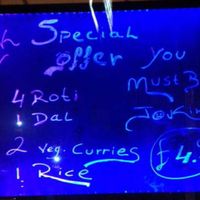 Special
offer you
Must B
4 Roti
1 Dal
2 Veg. Curries
1 Rice
£4.